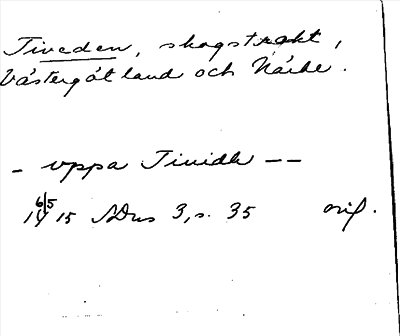 Tiveden, skogstrakt,
Västergötland och Närke.
- uppa Tiuidh --
6/5 1415 SDns 3, s. 35 orig.